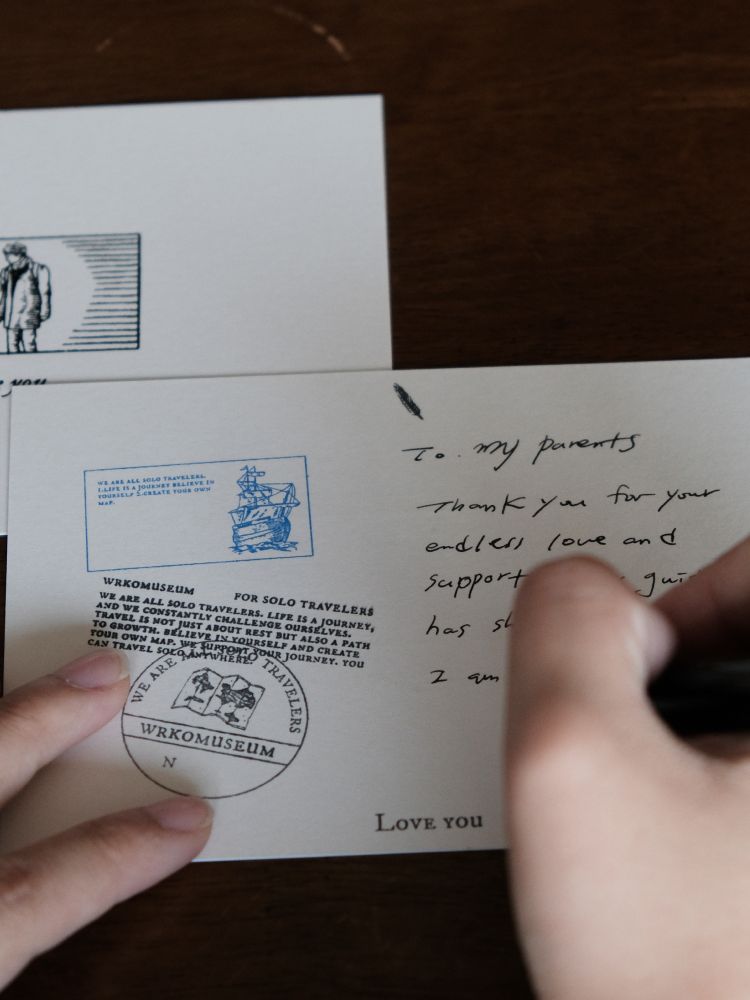 YOU
WE ARE ALL SOLO TRAVELERS.
1.LIFE IS A JOURNEY BELIEVE IN
YOURSELF 2.CREATE YOUR OWN
MAP.
WRKOMUSEUM FOR SOLO TRAVELERS
WE ARE ALL SOLO TRAVELERS. LIFE IS A JOURNEY,
AND WE CONSTANTLY CHALLENGE OURSELVES.
TRAVEL IS NOT JUST ABOUT REST BUT ALSO A PATH
TO GROWTH. BELIEVE IN YOURSELF AND CREATE
YOUR OWN MAP. WE SUPPORT YOUR JOURNEY. YOU
CAN TRAVEL SOLO ANYWHERE.
WE ARE ALL SOLO TRAVELERS
WRKOMUSEUM
N
To. my parents
Thank you for your
endless love and
support
has
I am
LOVE YOU